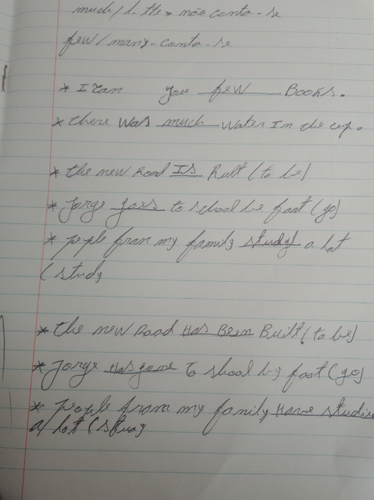 much/little = não conta-se
few/many - conta-se
* I can you few Books.
* there was much water In the cup.
* the new Road IS Built (to be)
* Jorge goes to school be foot (go)
* people from my family study a lot
(study
* the new Road Has Been Built (to be)
* Jorge Has gone to shool by foot (go)
* people from my family Have studie
a lot (stuy